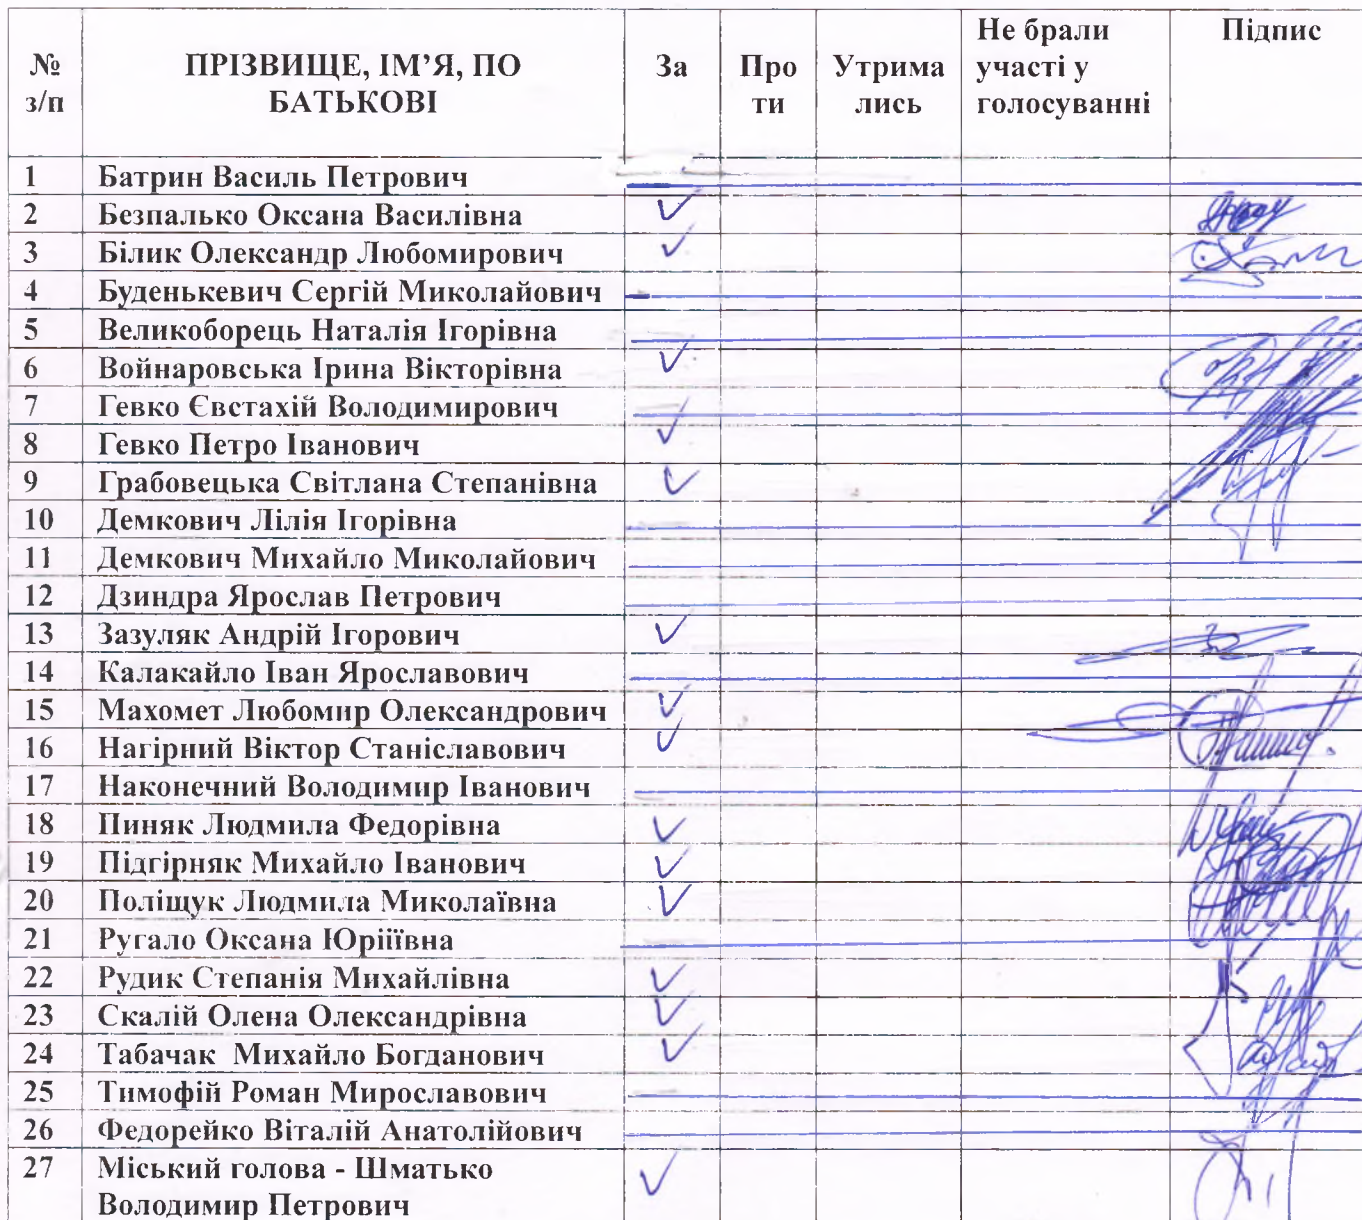 № з/п ПРІЗВИЩЕ, ІМ’Я, ПО БАТЬКОВІ За Про ти Утрима лись Не брали участі у голосуванні Підпис
1 Батрин Василь Петрович
2 Безпалько Оксана Василівна ✓
3 Білик Олександр Любомирович ✓
4 Буденькевич Сергій Миколайович
5 Великоборець Наталія Ігорівна
6 Войнаровська Ірина Вікторівна ✓
7 Гевко Євстахій Володимирович
8 Гевко Петро Іванович ✓
9 Грабовецька Світлана Степанівна ✓
10 Демкович Лілія Ігорівна
11 Демкович Михайло Миколайович
12 Дзиндра Ярослав Петрович
13 Зазуляк Андрій Ігорович ✓
14 Калакайло Іван Ярославович
15 Махомет Любомир Олександрович ✓
16 Нагірний Віктор Станіславович ✓
17 Наконечний Володимир Іванович
18 Пиняк Людмила Федорівна ✓
19 Підгірняк Михайло Іванович ✓
20 Поліщук Людмила Миколаївна ✓
21 Ругало Оксана Юріїївна
22 Рудик Степанія Михайлівна ✓
23 Скалій Олена Олександрівна ✓
24 Табачак Михайло Богданович ✓
25 Тимофій Роман Мирославович
26 Федорейко Віталій Анатолійович
27 Міський голова - Шматько ✓
Володимир Петрович